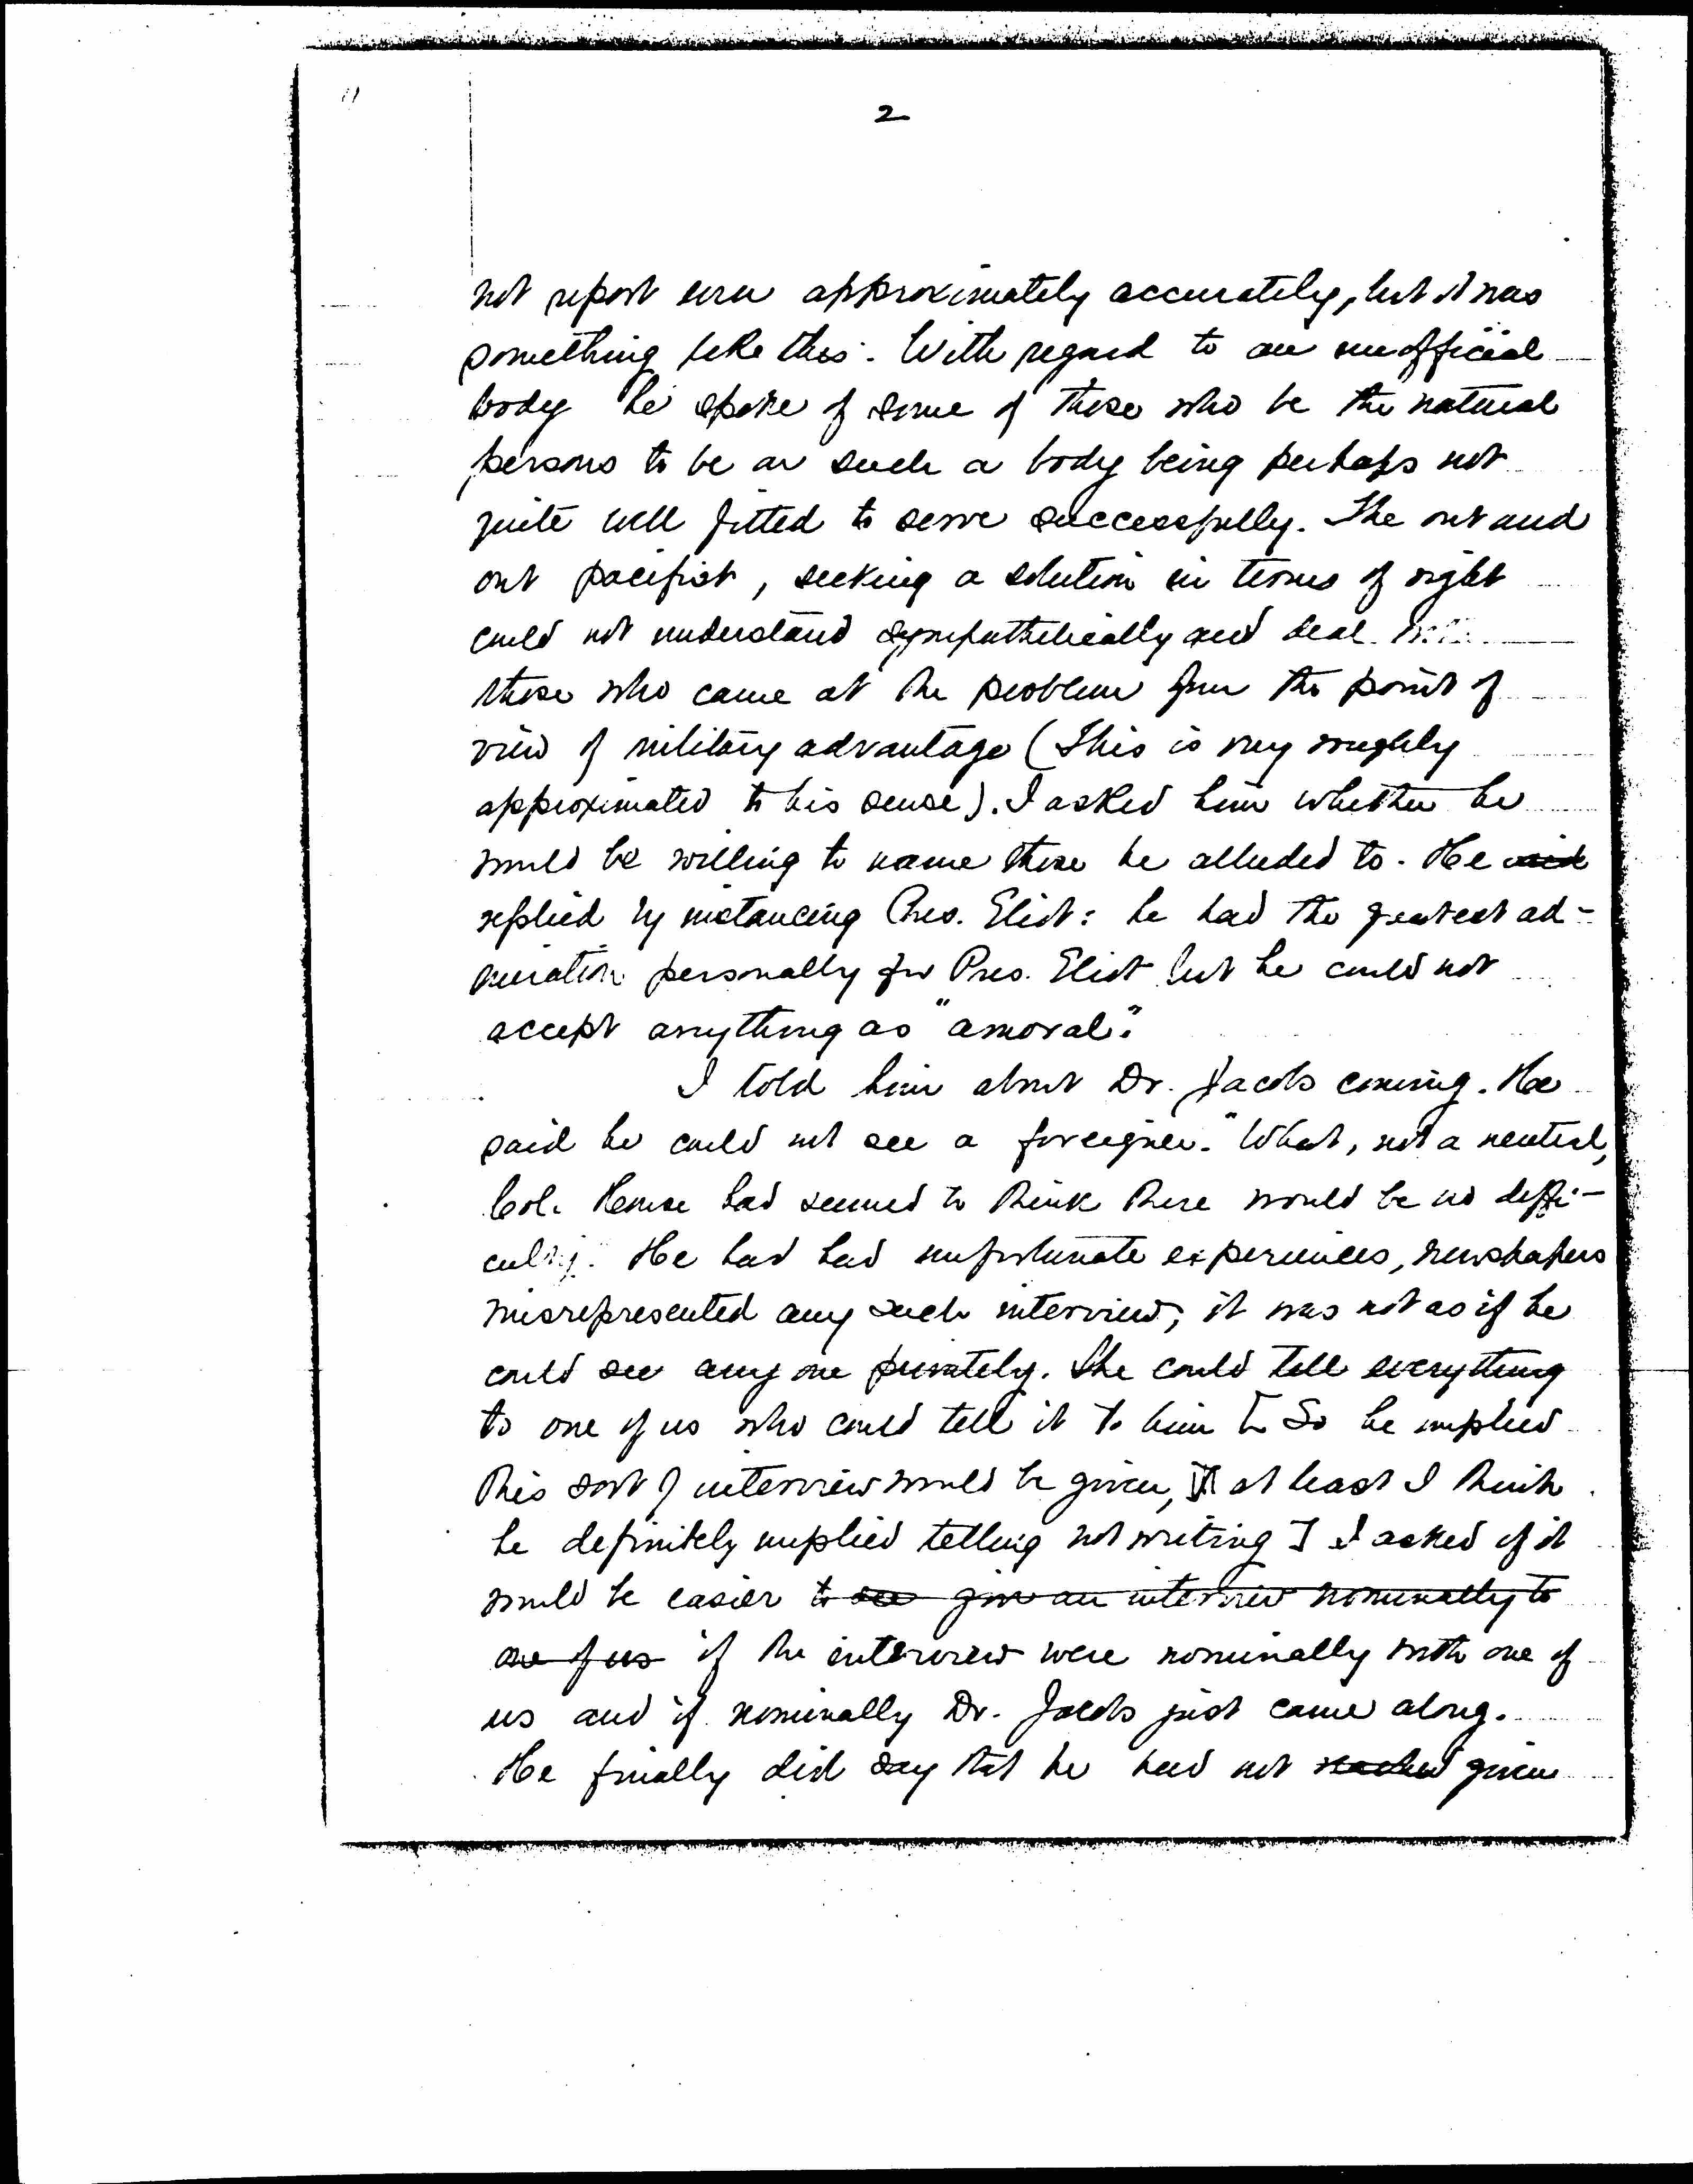 2
not report even approximately accurately, but it was
something like this. With regard to an unofficial
body he spoke of some of those who be the natural
persons to be on such a body being perhaps not
quite well fitted to serve successfully. The out and
out pacifist, seeking a solution in terms of right
could not understand sympathetically and deal with
those who came at the problem from the point of
view of military advantage (This is very roughly
approximated to his sense). I asked him whether he
would be willing to name those he alluded to. He said
replied by instancing Pres. Eliot: he had the greatest ad-
miration personally for Pres. Eliot but he could not
accept anything as "amoral".
I told him about Dr. Jacobs coming. He
said he could not see a foreigner. "What, not a neutral,
Col. House had seemed to think there would be no diffi-
culty." He had had unfortunate experiences, newspapers
misrepresented any such interview; it was not as if he
could see any one privately. She could tell everything
to one of us who could tell it to him [ So he implied
this sort of interview would be given, at least I think
he definitely implied telling not writing ] I asked if it
would be easier to see give an interview nominally to
one of us if the interview were nominally with one of
us and if nominally Dr. Jacobs just came along.
He finally did say that he had not given